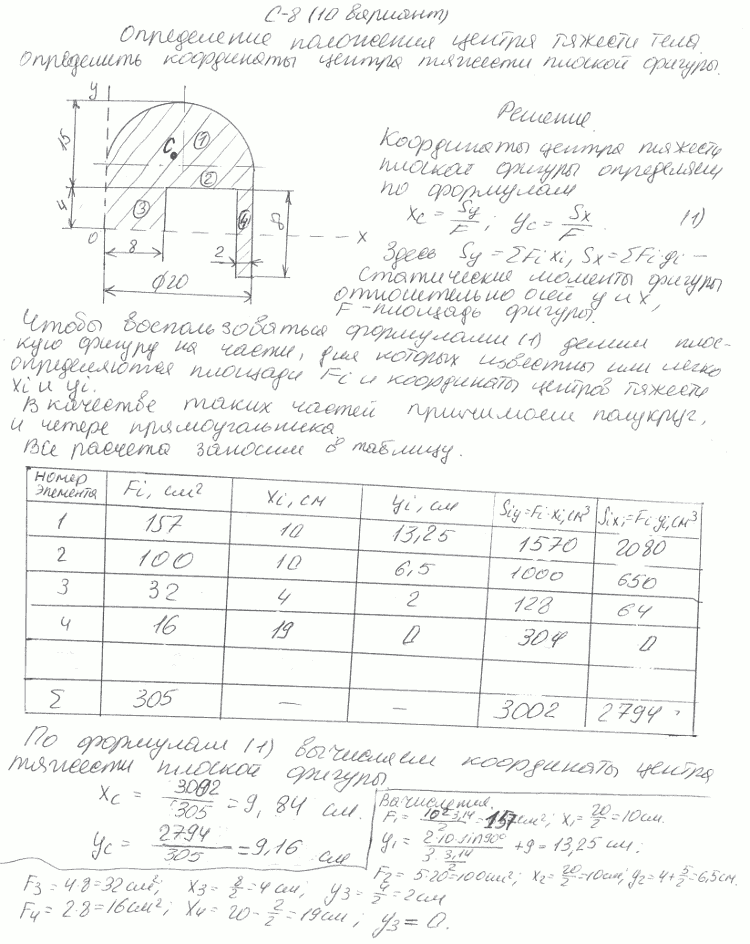 С-8 (10 вариант)
Определение положения центра тяжести тела.
Определить координаты центра тяжести плоской фигуры.
y
15
4
C
1
2
3
4
0
x
8
2
8
Ø20
Решение.
Координаты центра тяжести
плоской фигуры определяем
по формулам
Xc = Sy/F; Yc = Sx/F. (1)
Здесь Sy = ΣFi xi, Sx = ΣFi yi –
Статические моменты фигуры
относительно осей y и x,
F - площадь фигуры.
Чтобы воспользоваться формулами (1) делим плос-
кую фигуру на части, для которых известны или легко
определяются площади Fi и координаты центров тяжести
xi и yi.
В качестве таких частей принимаем полукруг,
и четере прямоугольника
Все расчета заносим в таблицу.
Номер элемента Fi, см² Xi, см yi, см Siy=Fi·xi, см³ Six=Fi·yi, см³
1 157 10 13,25 1570 2080
2 100 10 6,5 1000 650
3 32 4 2 128 64
4 16 19 0 304 0
Σ 305 — — 3002 2794
По формулам (1) вычисляем координаты центра
тяжести плоской фигуры
Xc = 3002/305 = 9,84 см.
Yc = 2794/305 = 9,16 см
Вычисления.
F1 = 10²·3,14/2 = 157 см²; X1 = 20/2 = 10 см.
y1 = 2·10·sin90°/(3·3,14/2) + 9 = 13,25 см.
F2 = 5·20 = 100 см²; X2 = 20/2 = 10 см; y2 = 4 + 5/2 = 6,5 см.
F3 = 4·8 = 32 см²; X3 = 8/2 = 4 см; y3 = 4/2 = 2 см
F4 = 2·8 = 16 см²; X4 = 20 - 2/2 = 19 см; y3 = 0.